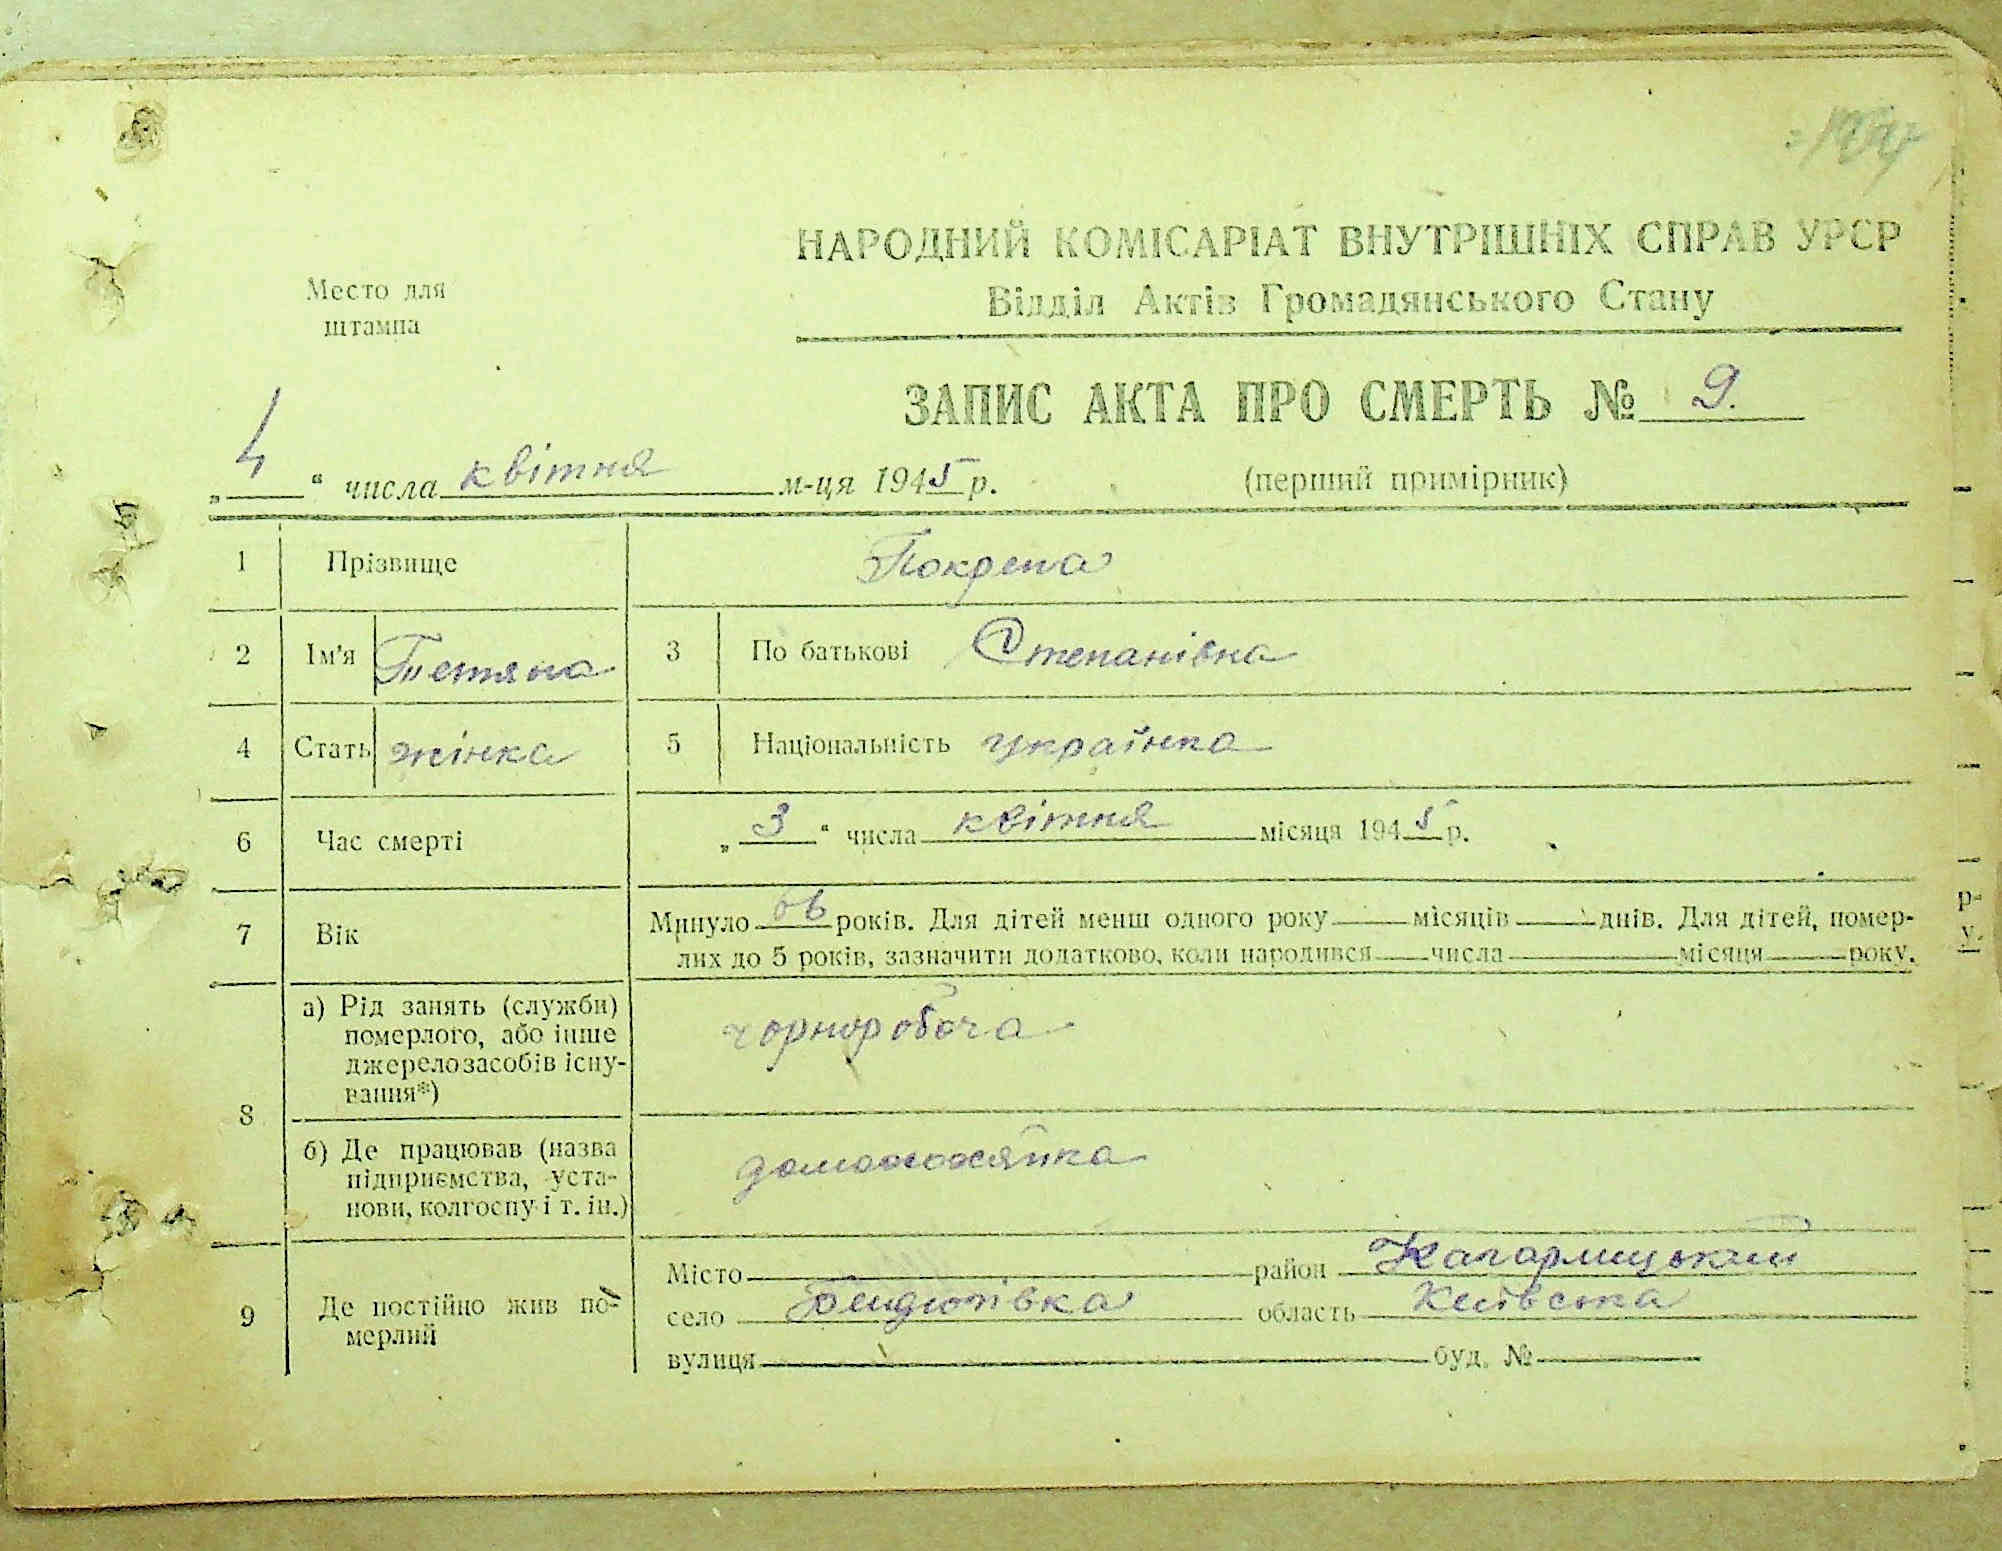 НАРОДНИЙ КОМІСАРІАТ ВНУТРІШНІХ СПРАВ УРСР
Відділ Актів Громадянського Стану
Место для
штампа
ЗАПИС АКТА ПРО СМЕРТЬ № 9.
„4“ числа квітня м-ця 1945 р.
(перший примірник)
1 Прізвище Покрепа
2 Ім'я Тетяна 3 По батькові Степанівна
4 Стать жінка 5 Національність українка
6 Час смерті „3“ числа квітня місяця 1945 р.
7 Вік Минуло 66 років. Для дітей менш одного року місяців днів. Для дітей, помер-
лих до 5 років, зазначити додатково, коли народився числа місяця року.
8 а) Рід занять (служби)
померлого, або інше
джерело засобів існу-
вання*)
чорноробоча
б) Де працював (назва
підприємства, уста-
нови, колгоспу і т. ін.)
домохозяйка
9 Де постійно жив по-
мерлий
Місто район Кагарлицький
село область Київська
вулиця буд. №
р-
у.